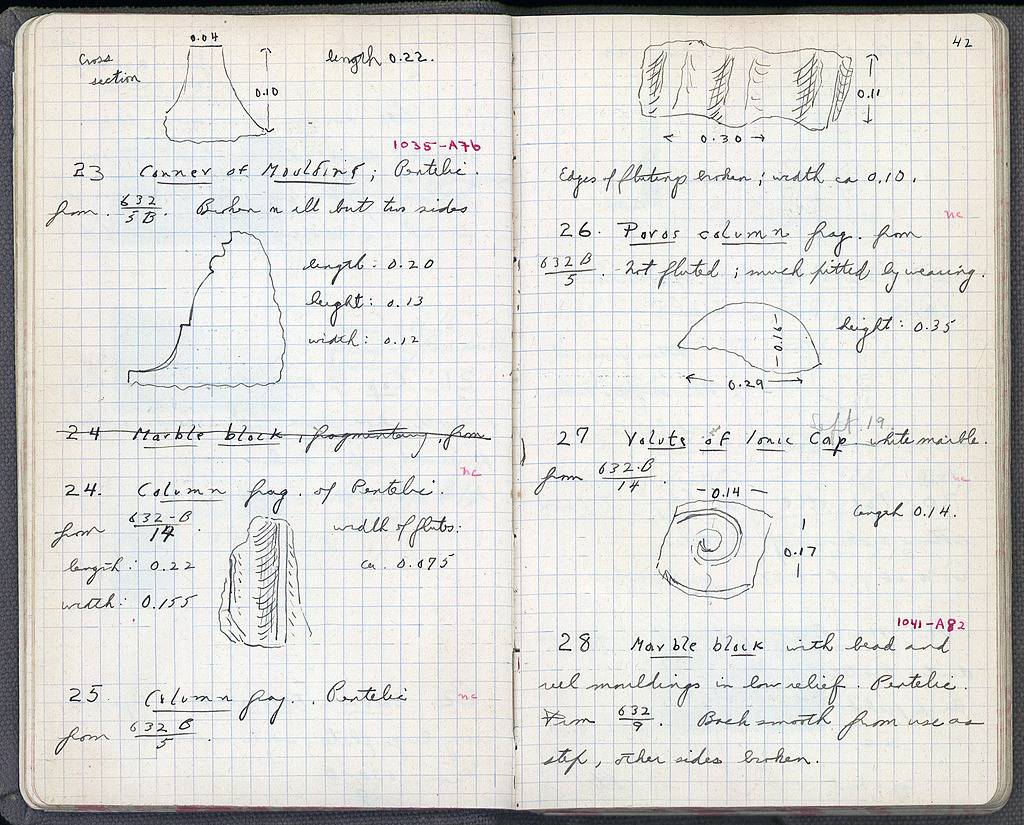 0.04
Cross
section
length 0.22.
0.10
1035-A76
23 Conner of Moulding; Pentelic.
from 632/5B. Broken on all but two sides
length: 0.20
height: 0.13
width: 0.12
24 Marble block, fragmentary, from
nc
24. Column frag. of Pentelic.
from 632-B/14.
width of flutes:
ca. 0.075
length: 0.22
width: 0.155
25 Column frag.. Pentelic
nc
from 632 B/5.
42
0.11
0.30
Edges of flutings broken; width ca 0.10.
nc
26. Poros column frag. from
632 B/5. Not fluted; much pitted by wearing.
0.16
height: 0.35
0.29
Sept. 19.
27 Volute of Ionic Cap. white marble.
from 632-B/14.
nc
0.14
Length 0.14.
0.17
1041-A82
28 Marble block with bead and
reel mouldings in low relief. Pentelic.
From 632/9. Back smooth from use as
step, other sides broken.